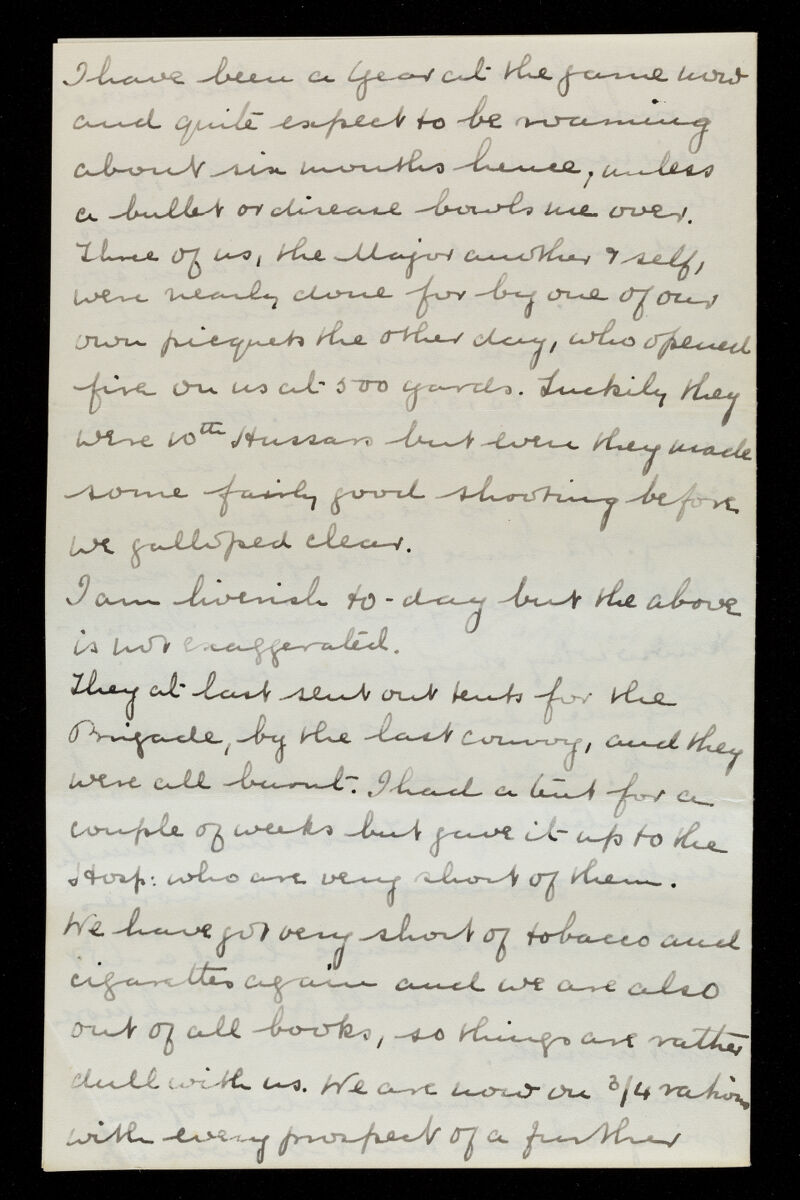 I have been a year at the game now
and quite expect to be roaming
about six months hence, unless
a bullet or disease bowls me over.
Three of us, the Major another & self,
were nearly done for by one of our
own picquets the other day, who opened
fire on us at 500 yards. Luckily they
were 10th Hussars but even they made
some fairly good shooting before
we galloped clear.
I am liverish to-day but the above
is not exaggerated.
They at last sent out tents for the
Brigade, by the last convoy, and they
were all burnt. I had a tent for a
couple of weeks but gave it up to the
Hosp: who are very short of them.
We have got very short of tobacco and
cigarettes again and we are also
out of all books, so things are rather
dull with us. We are now on 3/4 rations
with every prospect of a further